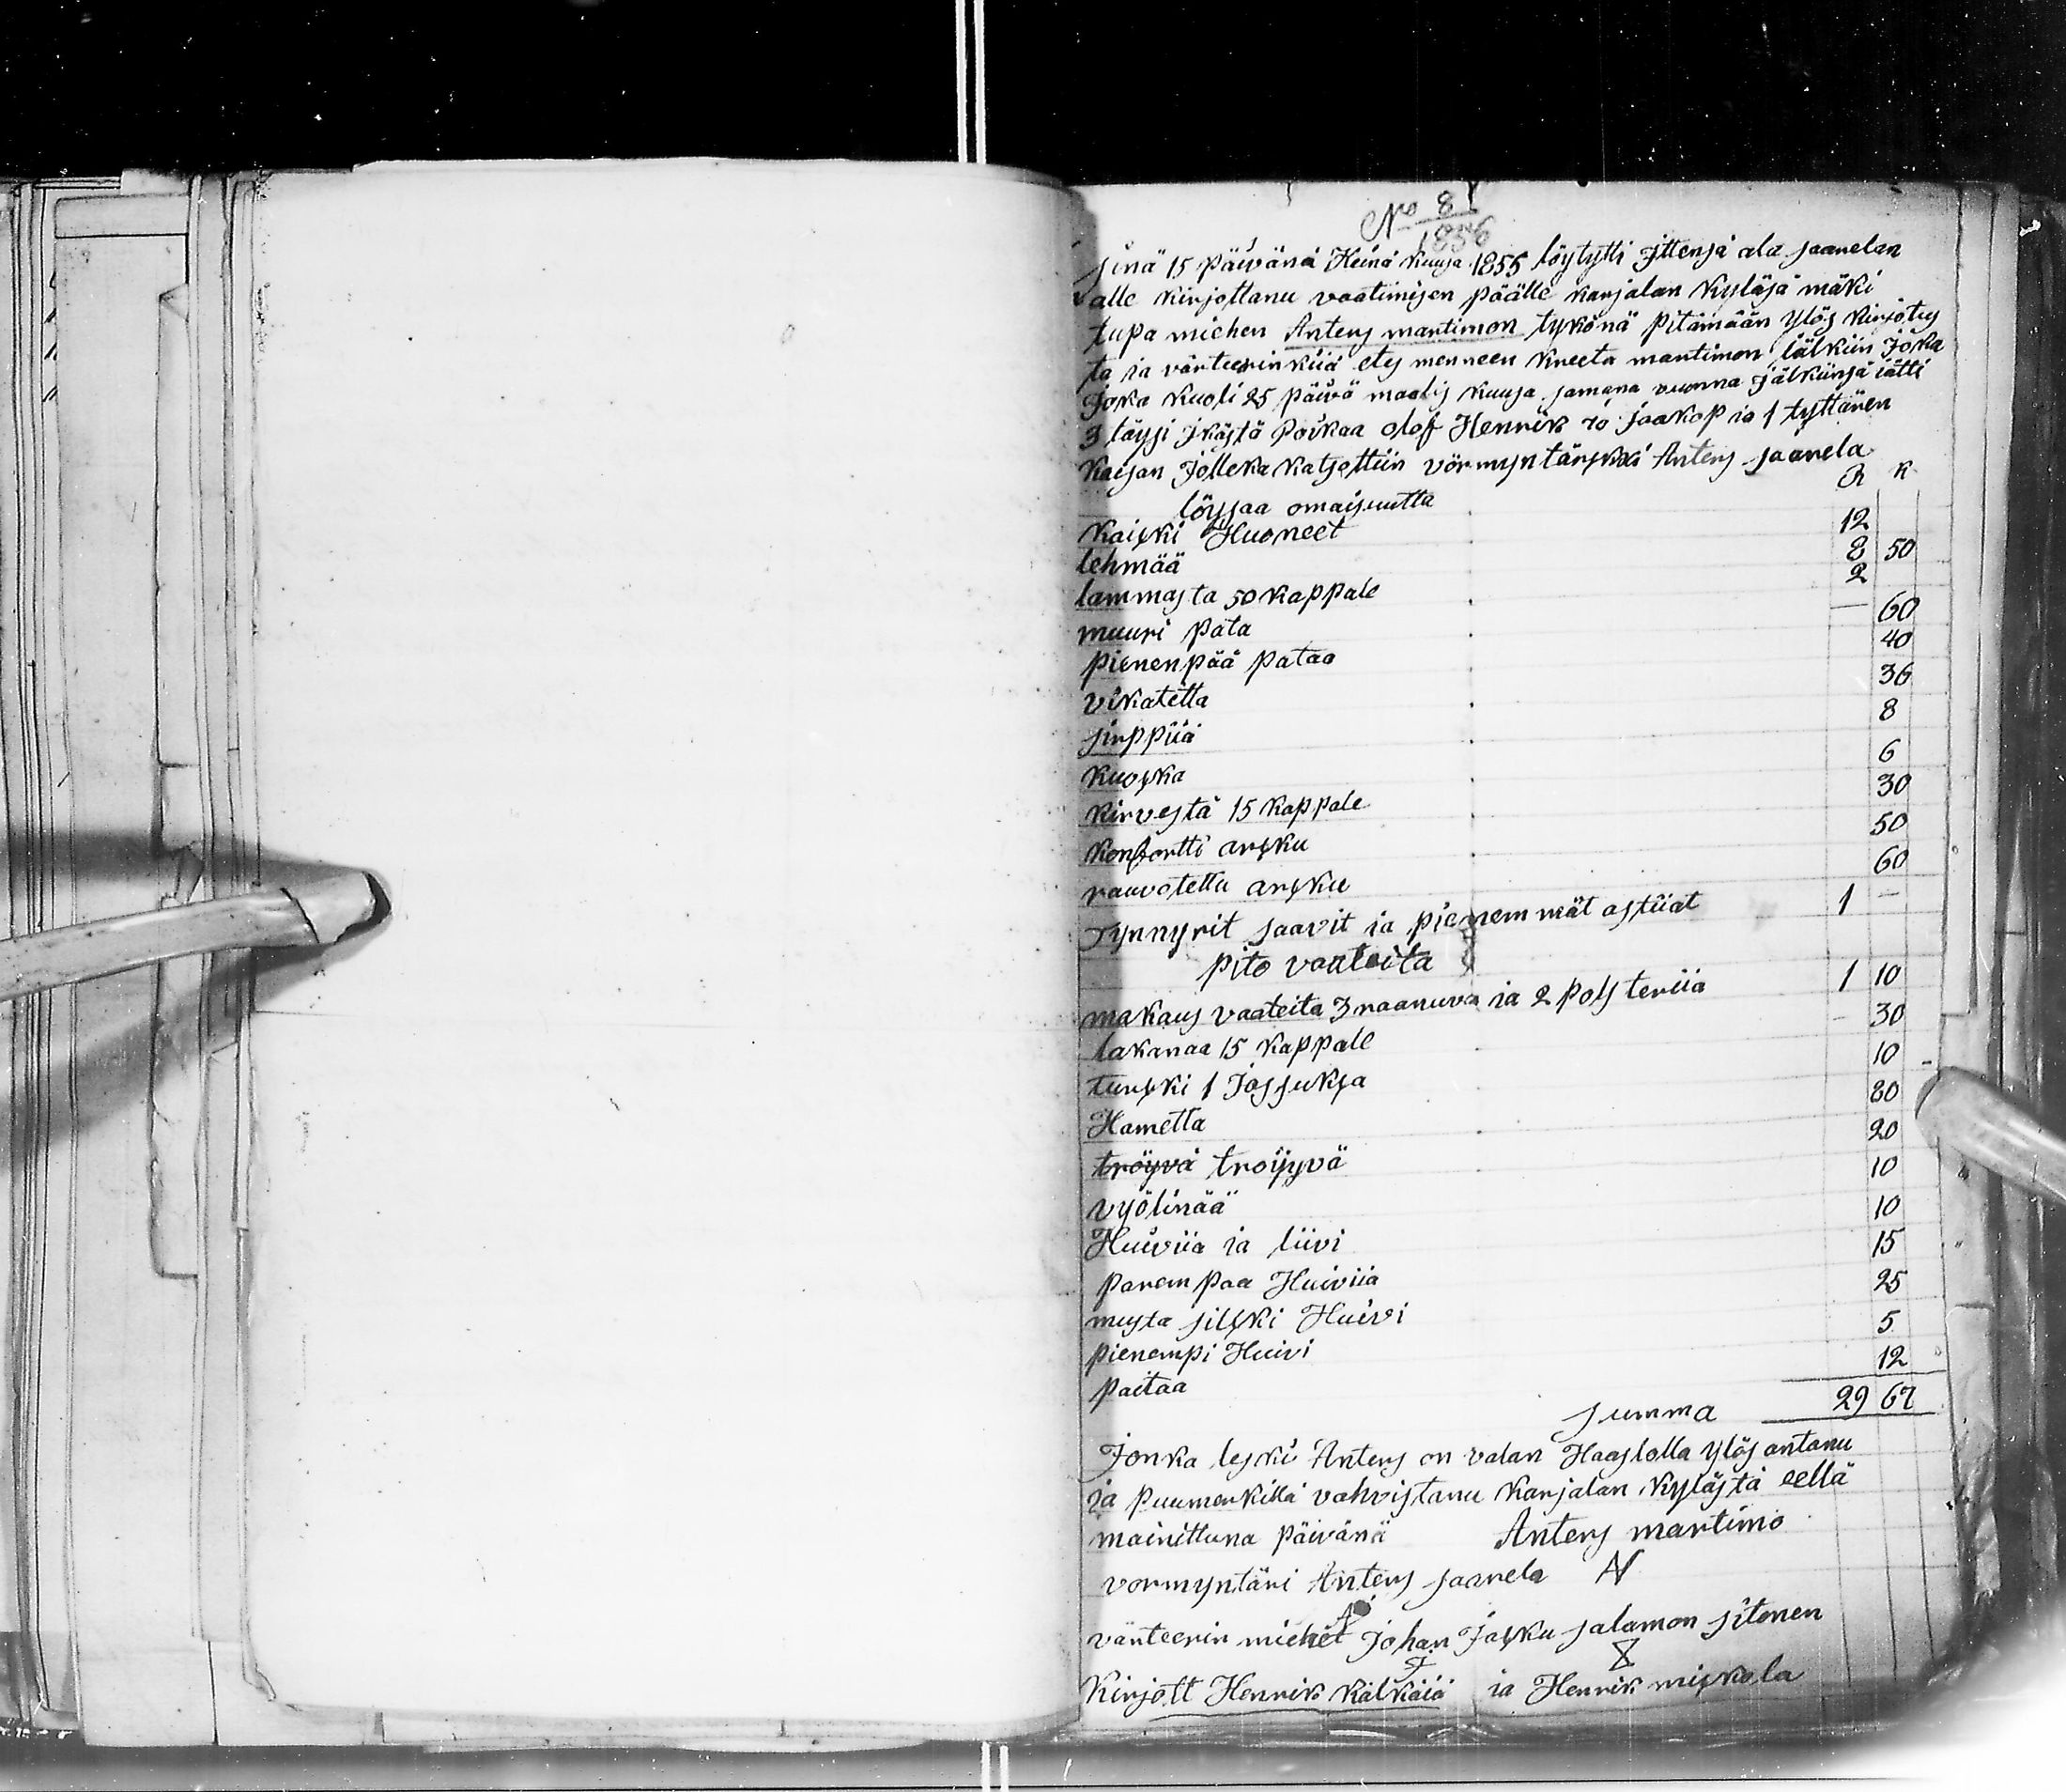 No 8
1856
sinä 15 päivänä Heinä kuusa 1855 löytytti Jttensä ala saarelan
alle kirjottanu vaatimisen päälle karjalan kyläsä mäki
tupa miehen Anters martimon tykönä pitämään ylös kirjotus
ta ia värteerinkiiä etes menneen kreeta martimon iälkiin Joka
Joka kuoli 25 päivä maalis kuusa samana vuonna Jälkiinsä iätti
3 täysi Jkästä poikaa olof Henrik ia jaakop ia 1 tyttären
kaisan Jolleka katsottiin vörmyntäriksi Anters saarela
R K
löysaa omaisuutta
kaikki Huoneet 12
lehmää 8 50
lammasta 50 kappale 2
muuri pata — 60
pienenpää pataa 40
vikatetta 36
sirppiiä 8
kuokka 6
kirvestä 15 kappale 30
konfoortti arkku 50
rauvotettu arkku 60
Tynnyrit saavit ia pienemmät astiiat 1 —
pito vaateita
makaus vaateita 3 raanuva ia 2 polsteriia 1 10
lakanaa 15 kappale — 30
turkki 1 Jossuksa 10
Hametta 80
tröyvä troijyvä 20
vyölinää 10
Huiviia ia liivi 10
parempaa Huiviia 15
musta silkki Huivi 25
pienempi Huivi 5
paitaa 12
summa 29 67
Jonka leski Anters on valan Haastolla ylös antanu
ia puumerkillä vahvistanu karjalan kylästä eellä
mainittuna päivänä Anters martimo
vormyntäri Anters saarela
värteerin miehet Johan Jasku salamon sitonen
kirjott Henrik kälkäiä ia Henrik miskola